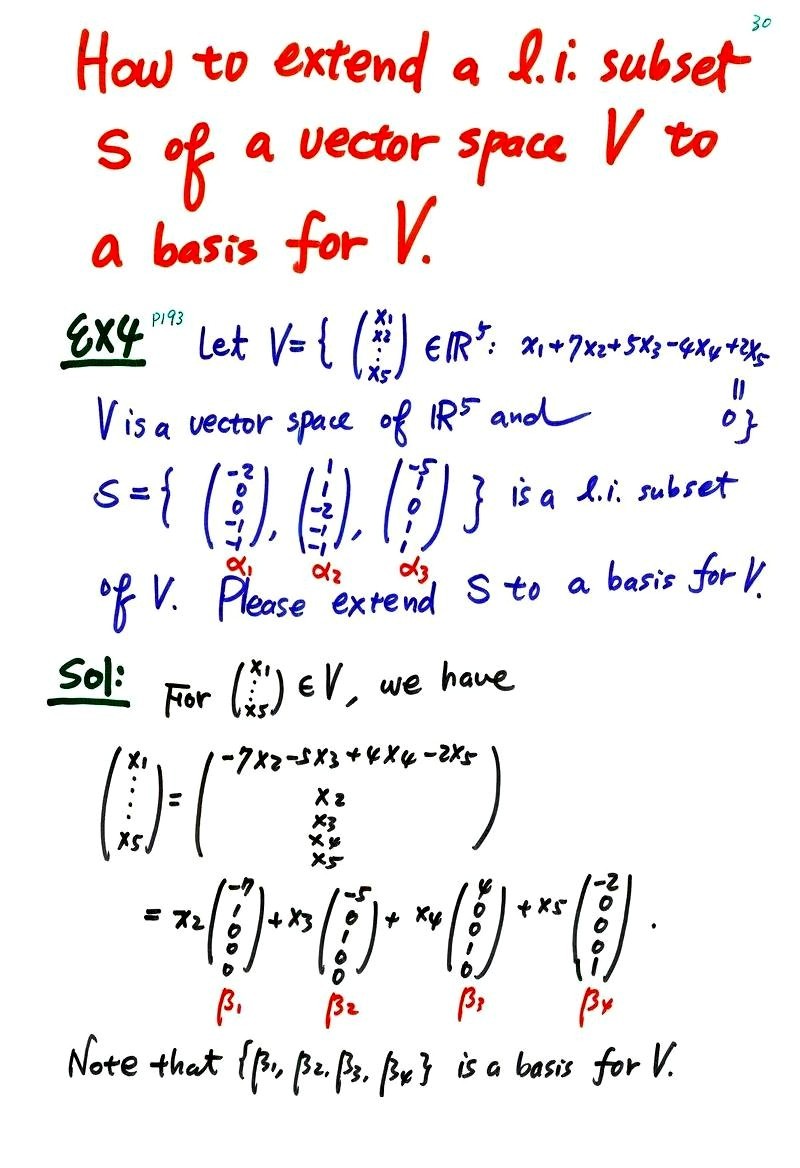 30
How to extend a l.i. subset
S of a vector space V to
a basis for V.
EX4 P193 Let V = { (x1 x2 ⋮ x5) ∈ ℝ⁵: x1+7x2+5x3-4x4+2x5
V is a vector space of ℝ⁵ and = 0 }
S = { (-2 0 0 -1 -1), (1 1 -2 -1 -1), (-5 1 0 1 1) } is a l.i. subset
α1 α2 α3
of V. Please extend S to a basis for V.
Sol: For (x1 ⋮ x5) ∈ V, we have
(x1 ⋮ x5) = (-7x2-5x3+4x4-2x5
x2
x3
x4
x5)
= x2 (-7 1 0 0 0) + x3 (-5 0 1 0 0) + x4 (4 0 0 1 0) + x5 (-2 0 0 0 1) .
β1 β2 β3 β4
Note that {β1, β2, β3, β4} is a basis for V.